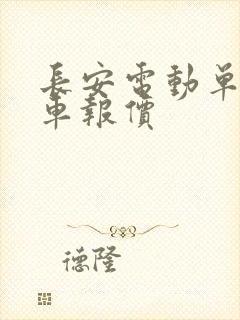 長安電動單
車報價
德隆